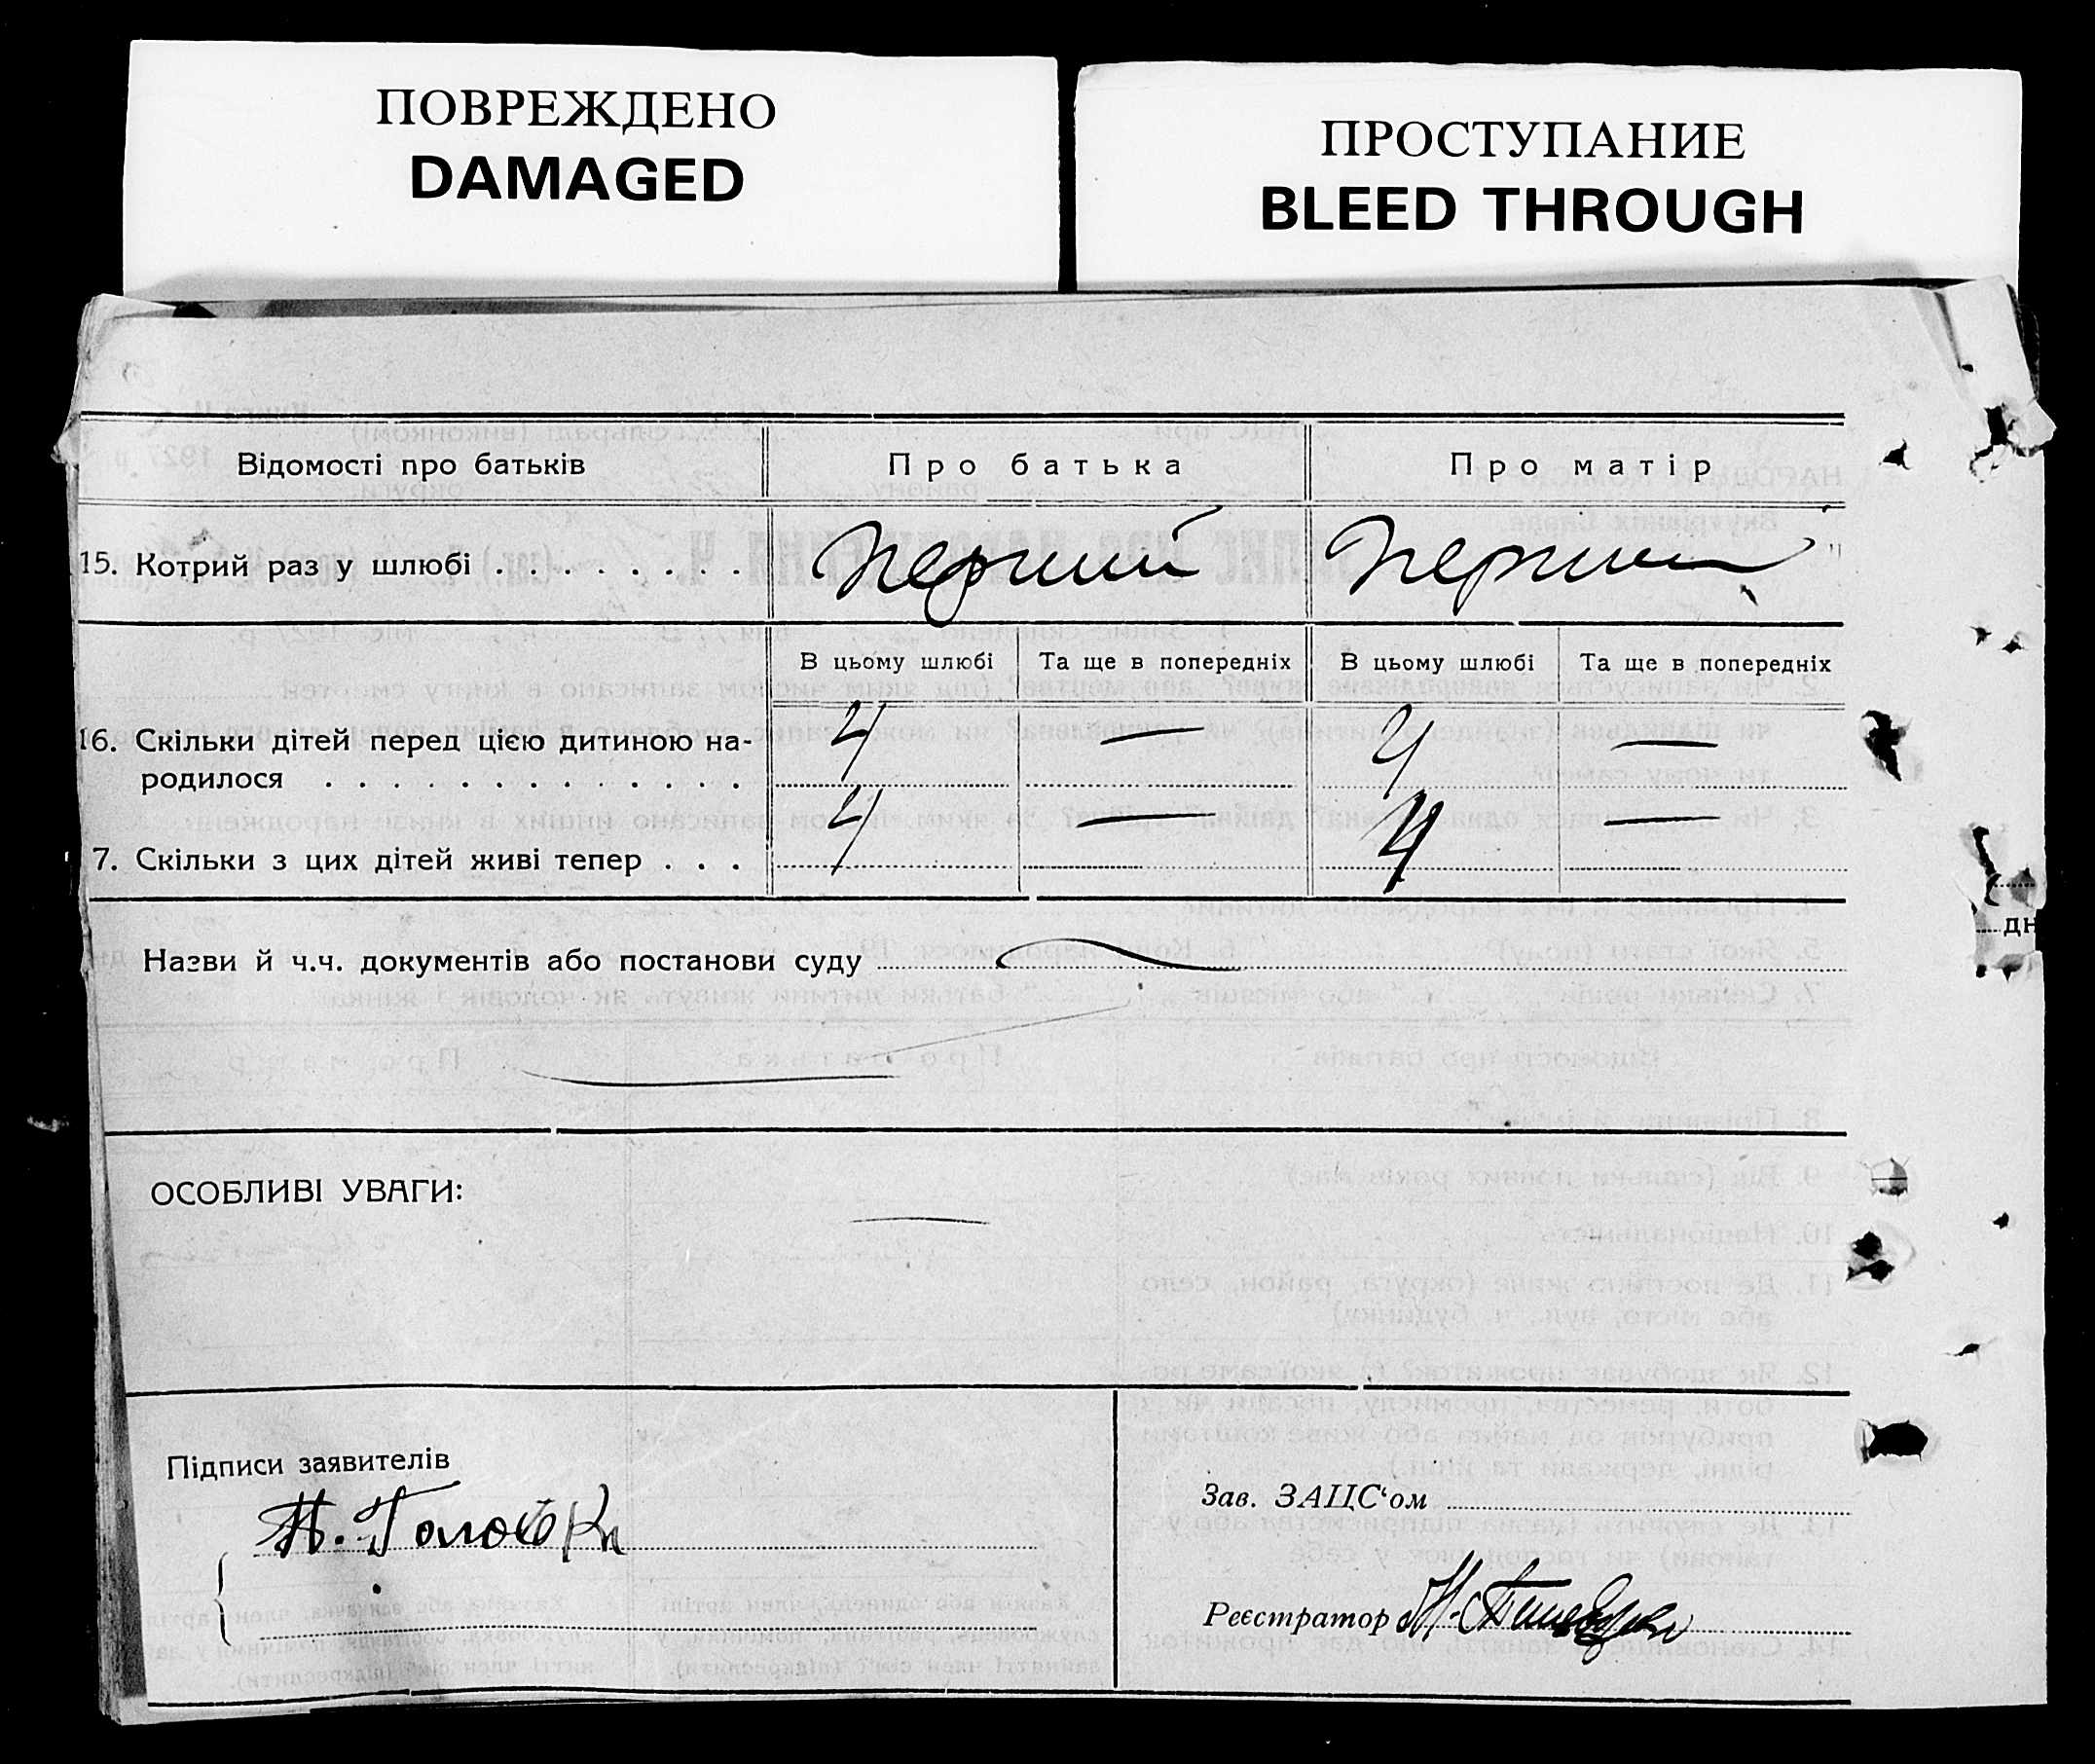 ПОВРЕЖДЕНО
DAMAGED
ПРОСТУПАНИЕ
BLEED THROUGH
Відомості про батьків
Про батька
Про матір
15. Котрий раз у шлюбі . . . . . . . . .
перший
перший
В цьому шлюбі
Та ще в попередніх
В цьому шлюбі
Та ще в попередніх
16. Скільки дітей перед цією дитиною на-
родилося . . . . . . . . . . . . .
4 — 4 —
7. Скільки з цих дітей живі тепер . . .
4 — 4 —
дн
Назви й ч.ч. документів або постанови суду
ОСОБЛИВІ УВАГИ:
—
Підписи заявителів
Зав. ЗАЦС‘ом
Реєстратор